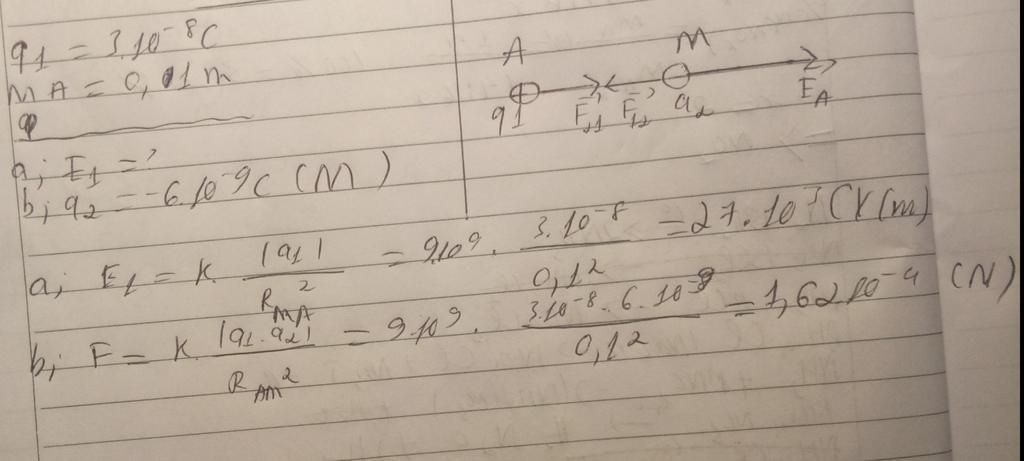 q1 = 3.10⁻⁸C
MA = 0,01m
a; E1 = ?
b; q2 = -6.10⁻⁹C (M)
A M
q1 F⃗21 F⃗12 q2 E⃗A
a; E1 = K. |q1| / R_MA² = 9.10⁹ . 3.10⁻⁸ / 0,1² = 27.10³ (V/m)
b; F = K. |q1.q2| / R_AM² = 9.10⁹ . 3.10⁻⁸.6.10⁻⁹ / 0,1² = 1,62.10⁻⁴ (N)